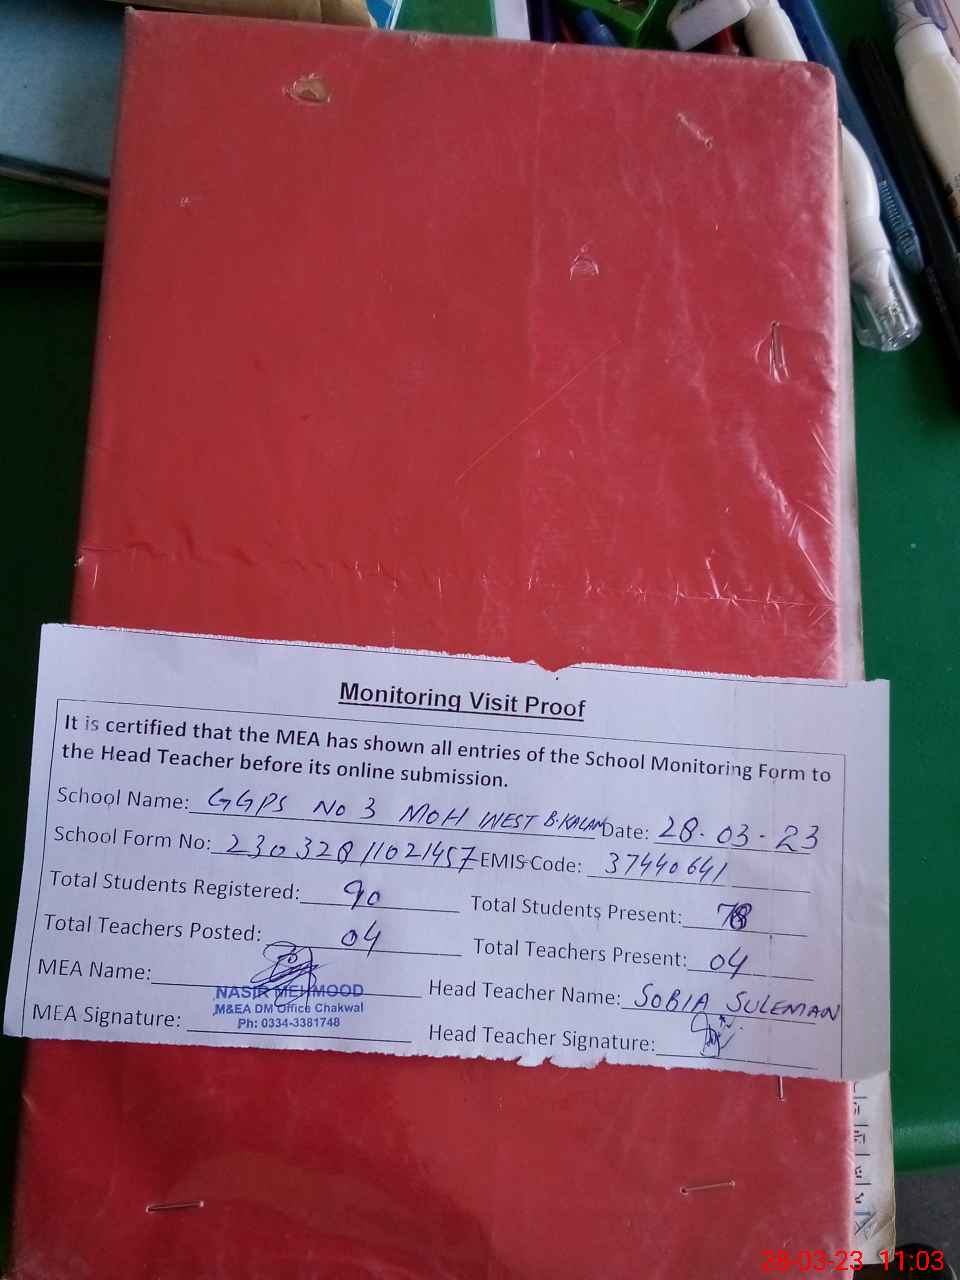 Monitoring Visit Proof
It is certified that the MEA has shown all entries of the School Monitoring Form to
the Head Teacher before its online submission.
School Name: GGPS No 3 MOH WEST B.KALAN Date: 28-03-23
School Form No: 23032811021457 EMIS Code: 37440641
Total Students Registered: 90 Total Students Present: 78
Total Teachers Posted: 04 Total Teachers Present: 04
MEA Name: Head Teacher Name: SOBIA SULEMAN
NASIR MEHMOOD
M&EA DM Office Chakwal
Ph: 0334-3381748
MEA Signature: Head Teacher Signature:
28-03-23 11:03